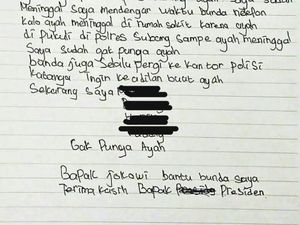 Meninggal Saya mendengar waktu bunda nelefon
kalo ayah meninggal di rumah sakit karena ayah
di Pukuli di polres Subang sampe ayah meninggal
Saya sudah gak punya ayah
bunda juga selalu pergi ke kantor polisi
katanya Ingin keadilan buat ayah
Sekarang saya
Gak Punya Ayah
Bapak jokowi bantu bunda saya
Terima kasih Bapak Presiden